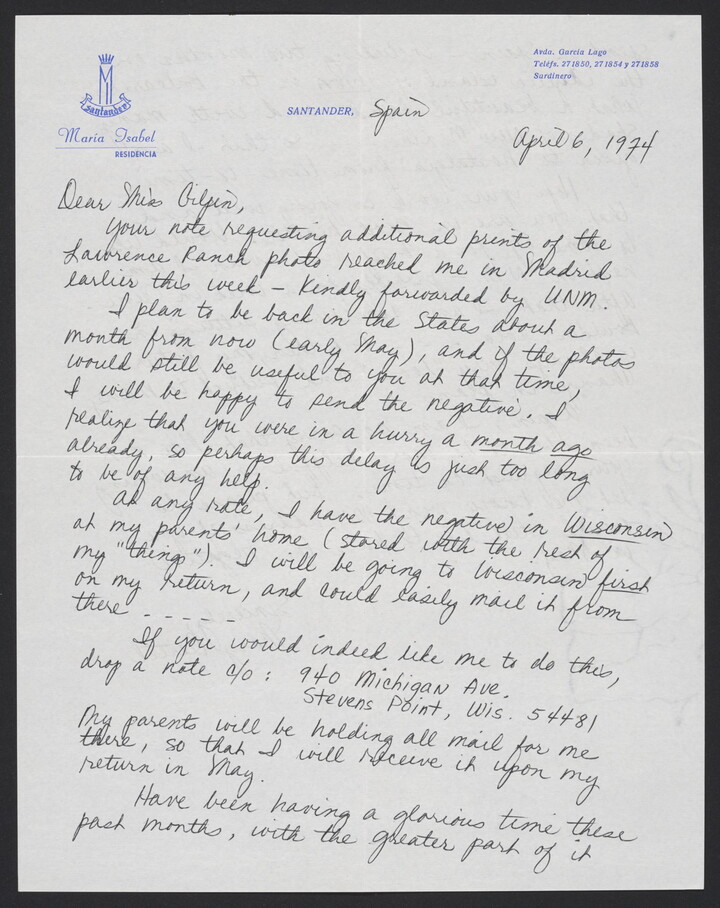 Avda. García Lago
Teléfs. 271850, 271854 y 271858
Sardinero
M
Santander
María Isabel
RESIDENCIA
SANTANDER, Spain
April 6, 1974
Dear Miss Gilpin,
Your note requesting additional prints of the
Lawrence Ranch photo reached me in Madrid
earlier this week – kindly forwarded by UNM.
I plan to be back in the States about a
month from now (early May), and if the photos
would still be useful to you at that time,
I will be happy to send the negative. I
realize that you were in a hurry a month ago
already, so perhaps this delay is just too long
to be of any help.
At any rate, I have the negative in Wisconsin
at my parents' home (stored with the rest of
my "things"). I will be going to Wisconsin first
on my return, and could easily mail it from
there _ _ _ _ _
If you would indeed like me to do this,
drop a note c/o : 940 Michigan Ave.
Stevens Point, Wis. 54481
My parents will be holding all mail for me
there, so that I will receive it upon my
return in May.
Have been having a glorious time these
past months, with the greater part of it